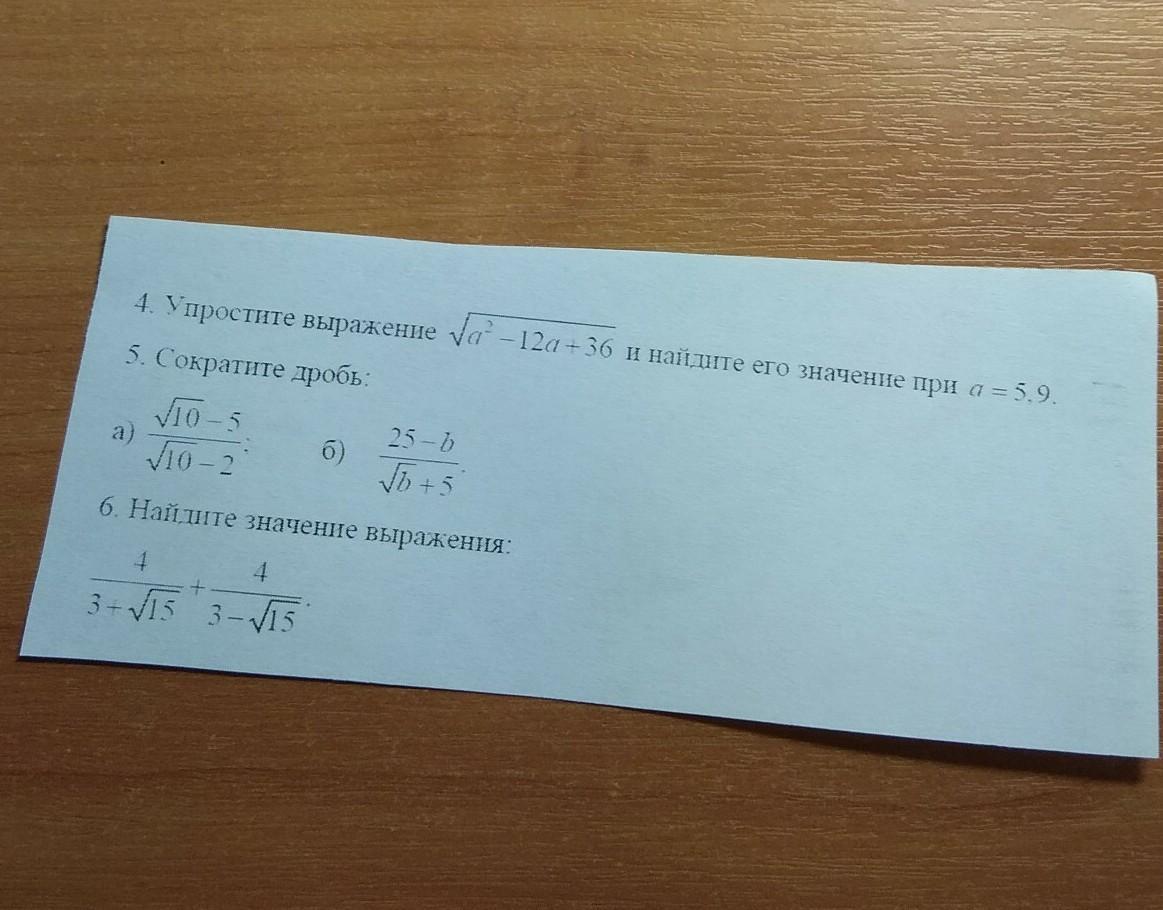 4. Упростите выражение √(a² − 12a + 36) и найдите его значение при a = 5,9.
5. Сократите дробь:
а) (√10 − 5)/(√10 − 2); б) (25 − b)/(√b + 5).
6. Найдите значение выражения:
4/(3 + √15) + 4/(3 − √15).